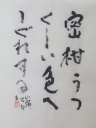 密柑うつ
くしい色へ
しぐれする